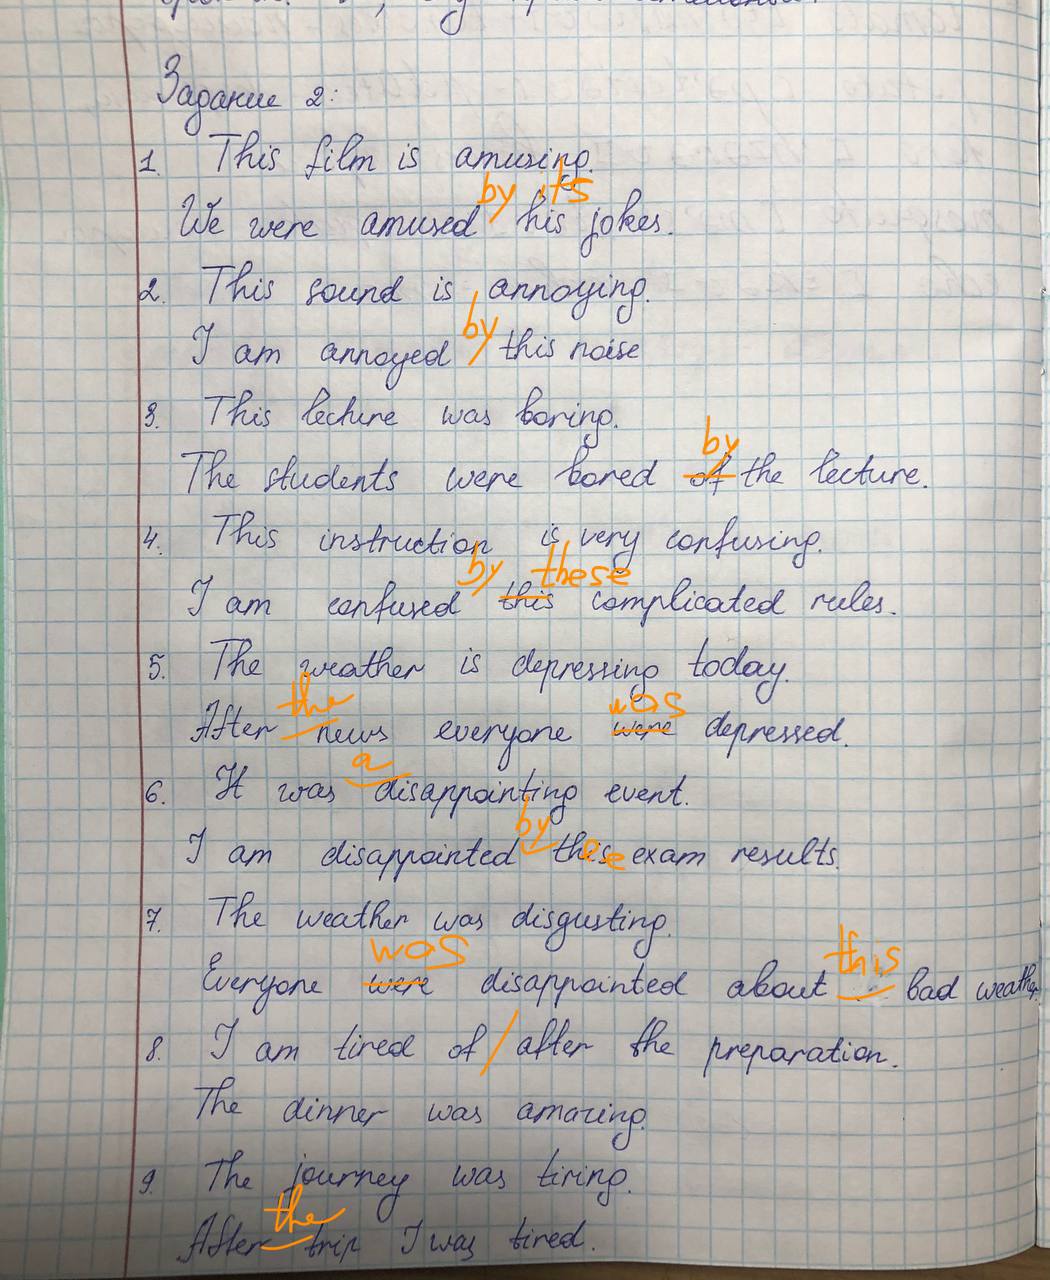 Задание 2:
1. This film is amusing.
by its
We were amused his jokes.
2. This sound is annoying.
by
I am annoyed this noise
3. This lecture was boring.
by
The students were bored of the lecture.
4. This instruction is very confusing.
by these
I am confused this complicated rules.
5. The weather is depressing today.
the was
After news everyone were depressed.
a
6. It was disappointing event.
by
I am disappointed these exam results.
7. The weather was disgusting.
was this
Everyone were disappointed about bad weather.
8. I am tired of / after the preparation.
The dinner was amazing.
9. The journey was tiring.
the
After trip I was tired.